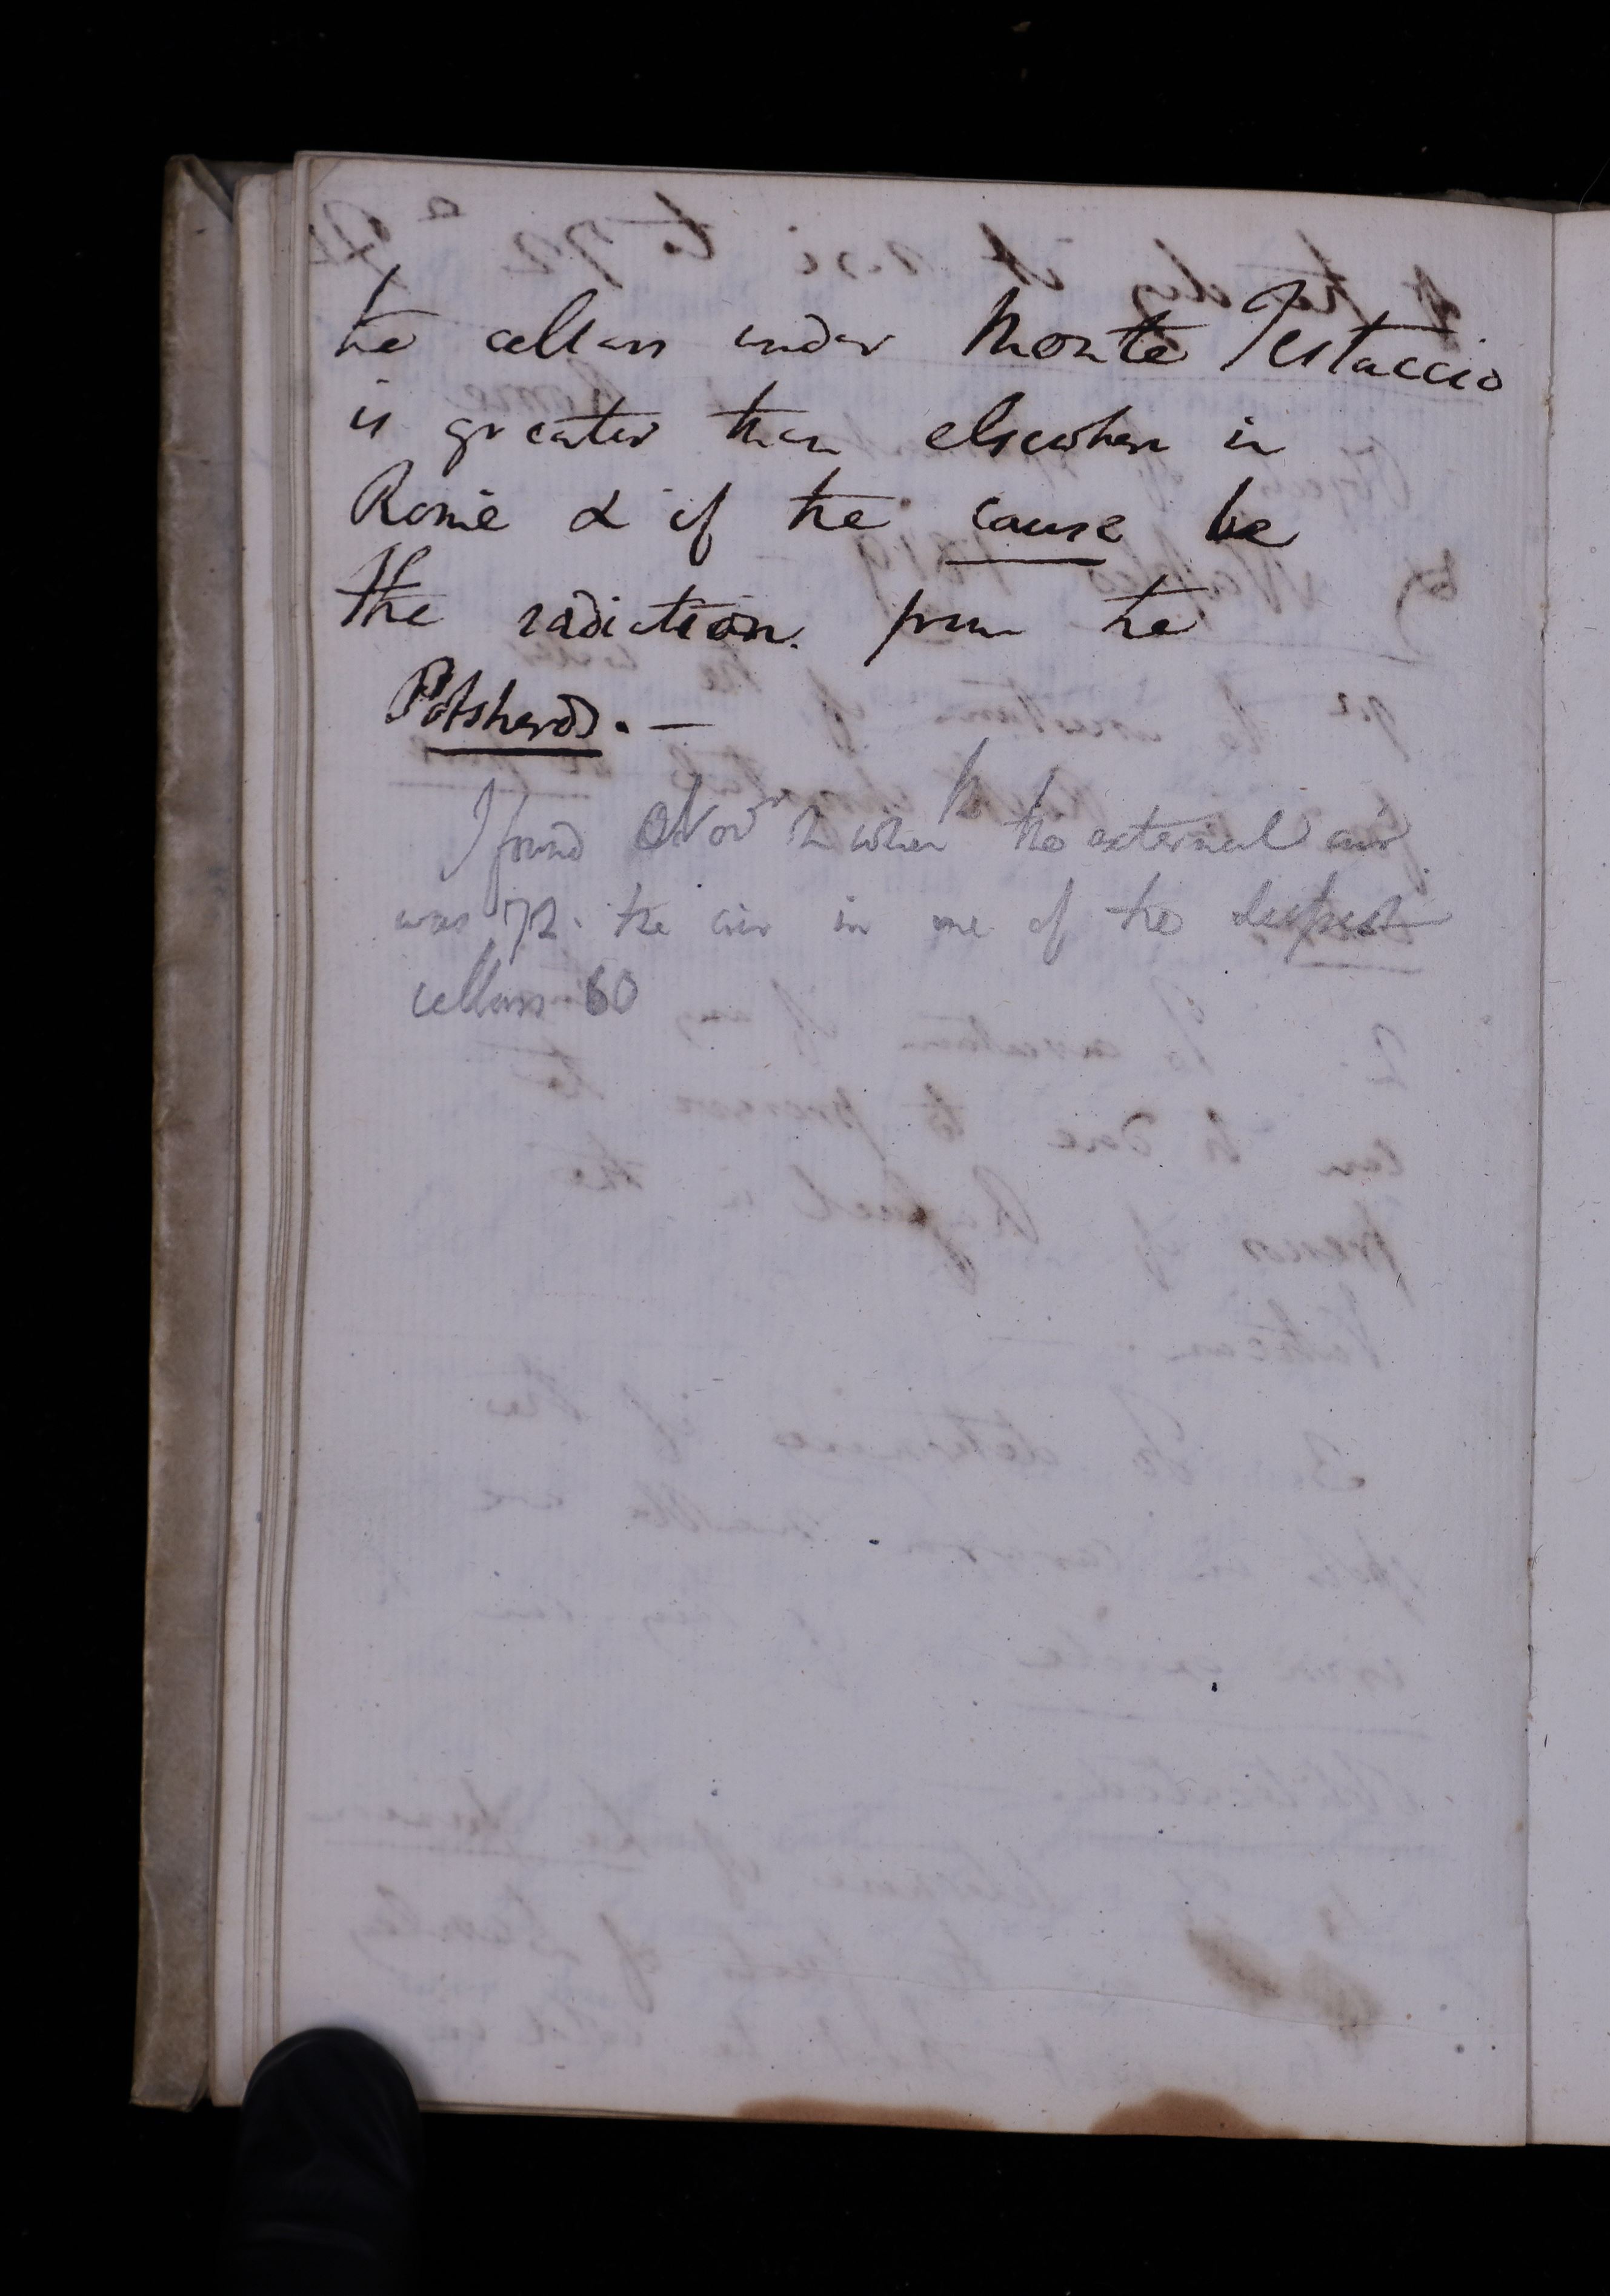 the cellars under Monte Testaccio
is greater than elsewhere in
Rome & if the cause be
the radiation from the
Potsherds. —
I found when the external air
was 72. the air in one of the deepest
cellars 60